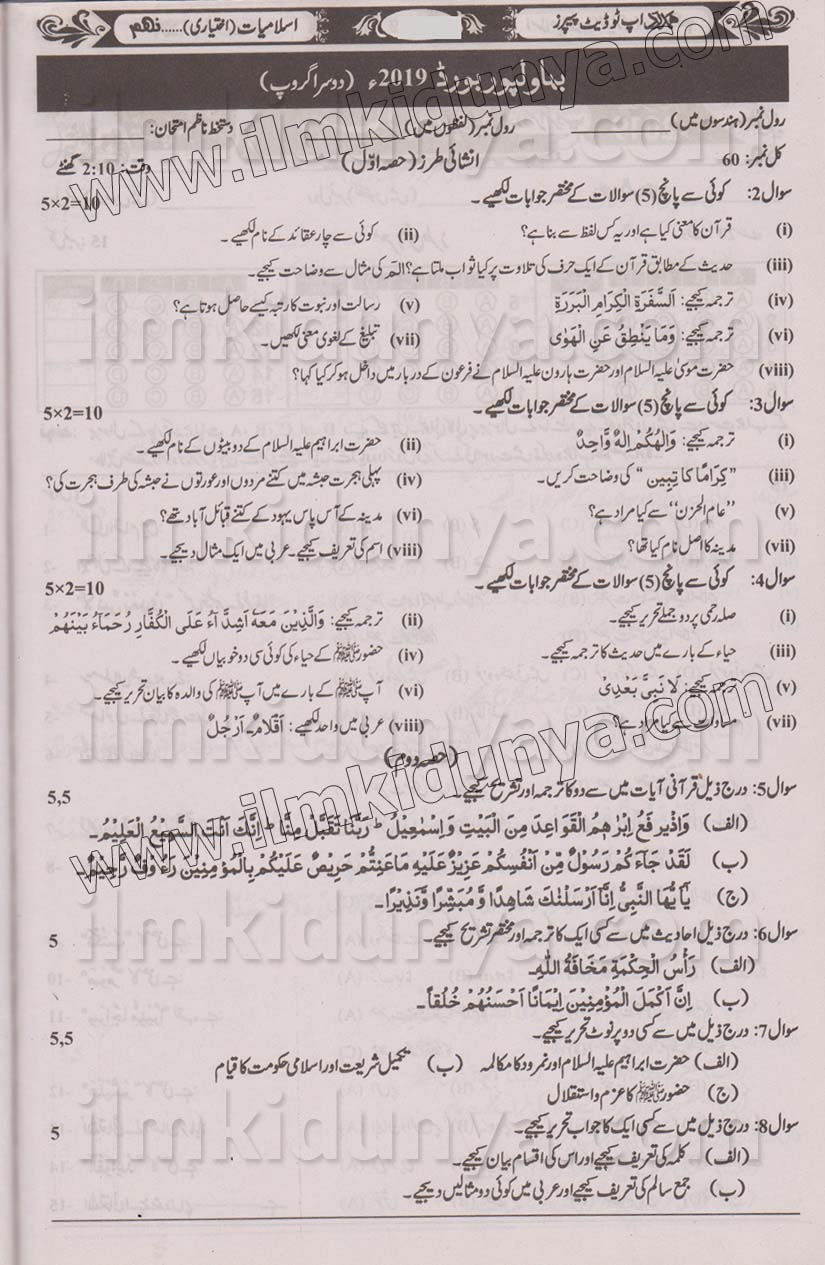 اپ ٹو ڈیٹ پیپرز
اسلامیات (اختیاری)......نہم
بہاولپور بورڈ 2019ء (دوسرا گروپ)
رول نمبر (ہندسوں میں) ________ رول نمبر (لفظوں میں) ________ دستخط ناظم امتحان: ________
کل نمبر: 60 انشائی طرز (حصہ اوّل) وقت: 2:10 گھنٹے
سوال2: کوئی سے پانچ (5) سوالات کے مختصر جوابات لکھیے۔ 5×2=10
(i) قرآن کا معنی کیا ہے اور یہ کس لفظ سے بنا ہے؟ (ii) کوئی سے چار عقائد کے نام لکھیے۔
(iii) حدیث کے مطابق قرآن کے ایک حرف کی تلاوت پر کیا ثواب ملتا ہے؟ الٓمّٓ کی مثال سے وضاحت کیجیے۔
(iv) ترجمہ کیجیے: اَلسَّفَرَةِ الْکِرَامِ الْبَرَرَةِ (v) رسالت اور نبوت کا رتبہ کیسے حاصل ہوتا ہے؟
(vi) ترجمہ کیجیے: وَمَا یَنْطِقُ عَنِ الْھَوٰی (vii) تبلیغ کے لغوی معنی لکھیں۔
(viii) حضرت موسیٰ علیہ السلام اور حضرت ہارون علیہ السلام نے فرعون کے دربار میں داخل ہو کر کیا کہا؟
سوال3: کوئی سے پانچ (5) سوالات کے مختصر جوابات لکھیے۔ 5×2=10
(i) ترجمہ کیجیے: وَاِلٰھُکُمْ اِلٰهٌ وَّاحِدٌ (ii) حضرت ابراہیم علیہ السلام کے دو بیٹوں کے نام لکھیے۔
(iii) ”کِرَامًا کَاتِبِین“ کی وضاحت کریں۔ (iv) پہلی ہجرت حبشہ میں کتنے مردوں اور عورتوں نے حبشہ کی طرف ہجرت کی؟
(v) ’’عام الحزن‘‘ سے کیا مراد ہے؟ (vi) مدینہ کے آس پاس یہود کے کتنے قبائل آباد تھے؟
(vii) مدینہ کا اصل نام کیا تھا؟ (viii) اسم کی تعریف کیجیے۔ عربی میں ایک مثال دیجیے۔
سوال4: کوئی سے پانچ (5) سوالات کے مختصر جوابات لکھیے۔ 5×2=10
(i) صلہ رحمی پر دو جملے تحریر کیجیے۔ (ii) ترجمہ کیجیے: وَالَّذِیْنَ مَعَهٗ اَشِدَّآءُ عَلَی الْکُفَّارِ رُحَمَآءُ بَیْنَهُمْ
(iii) حیاء کے بارے میں حدیث کا ترجمہ کیجیے۔ (iv) حضورﷺ کے حیاء کی کوئی سی دو خوبیاں لکھیے۔
(v) ترجمہ کیجیے: لَا نَبِیَّ بَعْدِیْ (vi) آپﷺ کے بارے میں آپﷺ کی والدہ کا بیان تحریر کیجیے۔
(vii) مساوات سے کیا مراد ہے؟ (viii) عربی میں واحد لکھیے: اَقْلَامٌ۔ اَرْجُلٌ
(حصہ دوم)
سوال5: درج ذیل قرآنی آیات میں سے دو کا ترجمہ اور تشریح کیجیے۔ 5,5
(الف) وَاِذْ یَرْفَعُ اِبْرٰهٖمُ الْقَوَاعِدَ مِنَ الْبَیْتِ وَاِسْمٰعِیْلُ ؕ رَبَّنَا تَقَبَّلْ مِنَّا ؕ اِنَّكَ اَنْتَ السَّمِیْعُ الْعَلِیْمُ۔
(ب) لَقَدْ جَآءَ کُمْ رَسُوْلٌ مِّنْ اَنْفُسِکُمْ عَزِیْزٌ عَلَیْهِ مَاعَنِتُّمْ حَرِیْصٌ عَلَیْکُمْ بِالْمُؤْمِنِیْنَ رَءُوْفٌ رَّحِیْمٌ۔
(ج) یٰٓاَیُّهَا النَّبِیُّ اِنَّآ اَرْسَلْنٰكَ شَاهِدًا وَّ مُبَشِّرًا وَّنَذِیْرًا۔
سوال6: درج ذیل احادیث میں سے کسی ایک کا ترجمہ اور مختصر تشریح کیجیے۔ 5
(الف) رَأْسُ الْحِکْمَةِ مَخَافَةُ اللّٰهِ۔
(ب) اِنَّ اَکْمَلَ الْمُؤْمِنِیْنَ اِیْمَانًا اَحْسَنُهُمْ خُلُقاً۔
سوال7: درج ذیل میں سے کسی دو پر نوٹ تحریر کیجیے۔ 5,5
(الف) حضرت ابراہیم علیہ السلام اور نمرود کا مکالمہ (ب) تکمیل شریعت اور اسلامی حکومت کا قیام
(ج) حضورﷺ کا عزم و استقلال
سوال8: درج ذیل میں سے کسی ایک کا جواب تحریر کیجیے۔ 5
(الف) کلمہ کی تعریف کیجیے اور اس کی اقسام بیان کیجیے۔
(ب) جمع سالم کی تعریف کیجیے اور عربی میں کوئی دو مثالیں دیجیے۔
www.ilmkidunya.com
www.ilmkidunya.com
ilmkidunya.com
ilmkidunya.com
ilmkidunya.com
ilmkidunya.com
ilmkidunya.com
ilmkidunya.com